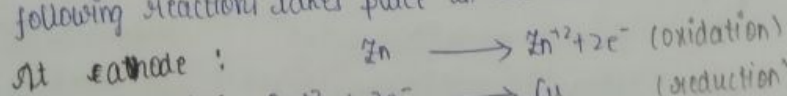 following reactions takes place
At cathode : Zn ⟶ Zn⁺² + 2e⁻ (oxidation)
⟶ Cu (reduction)